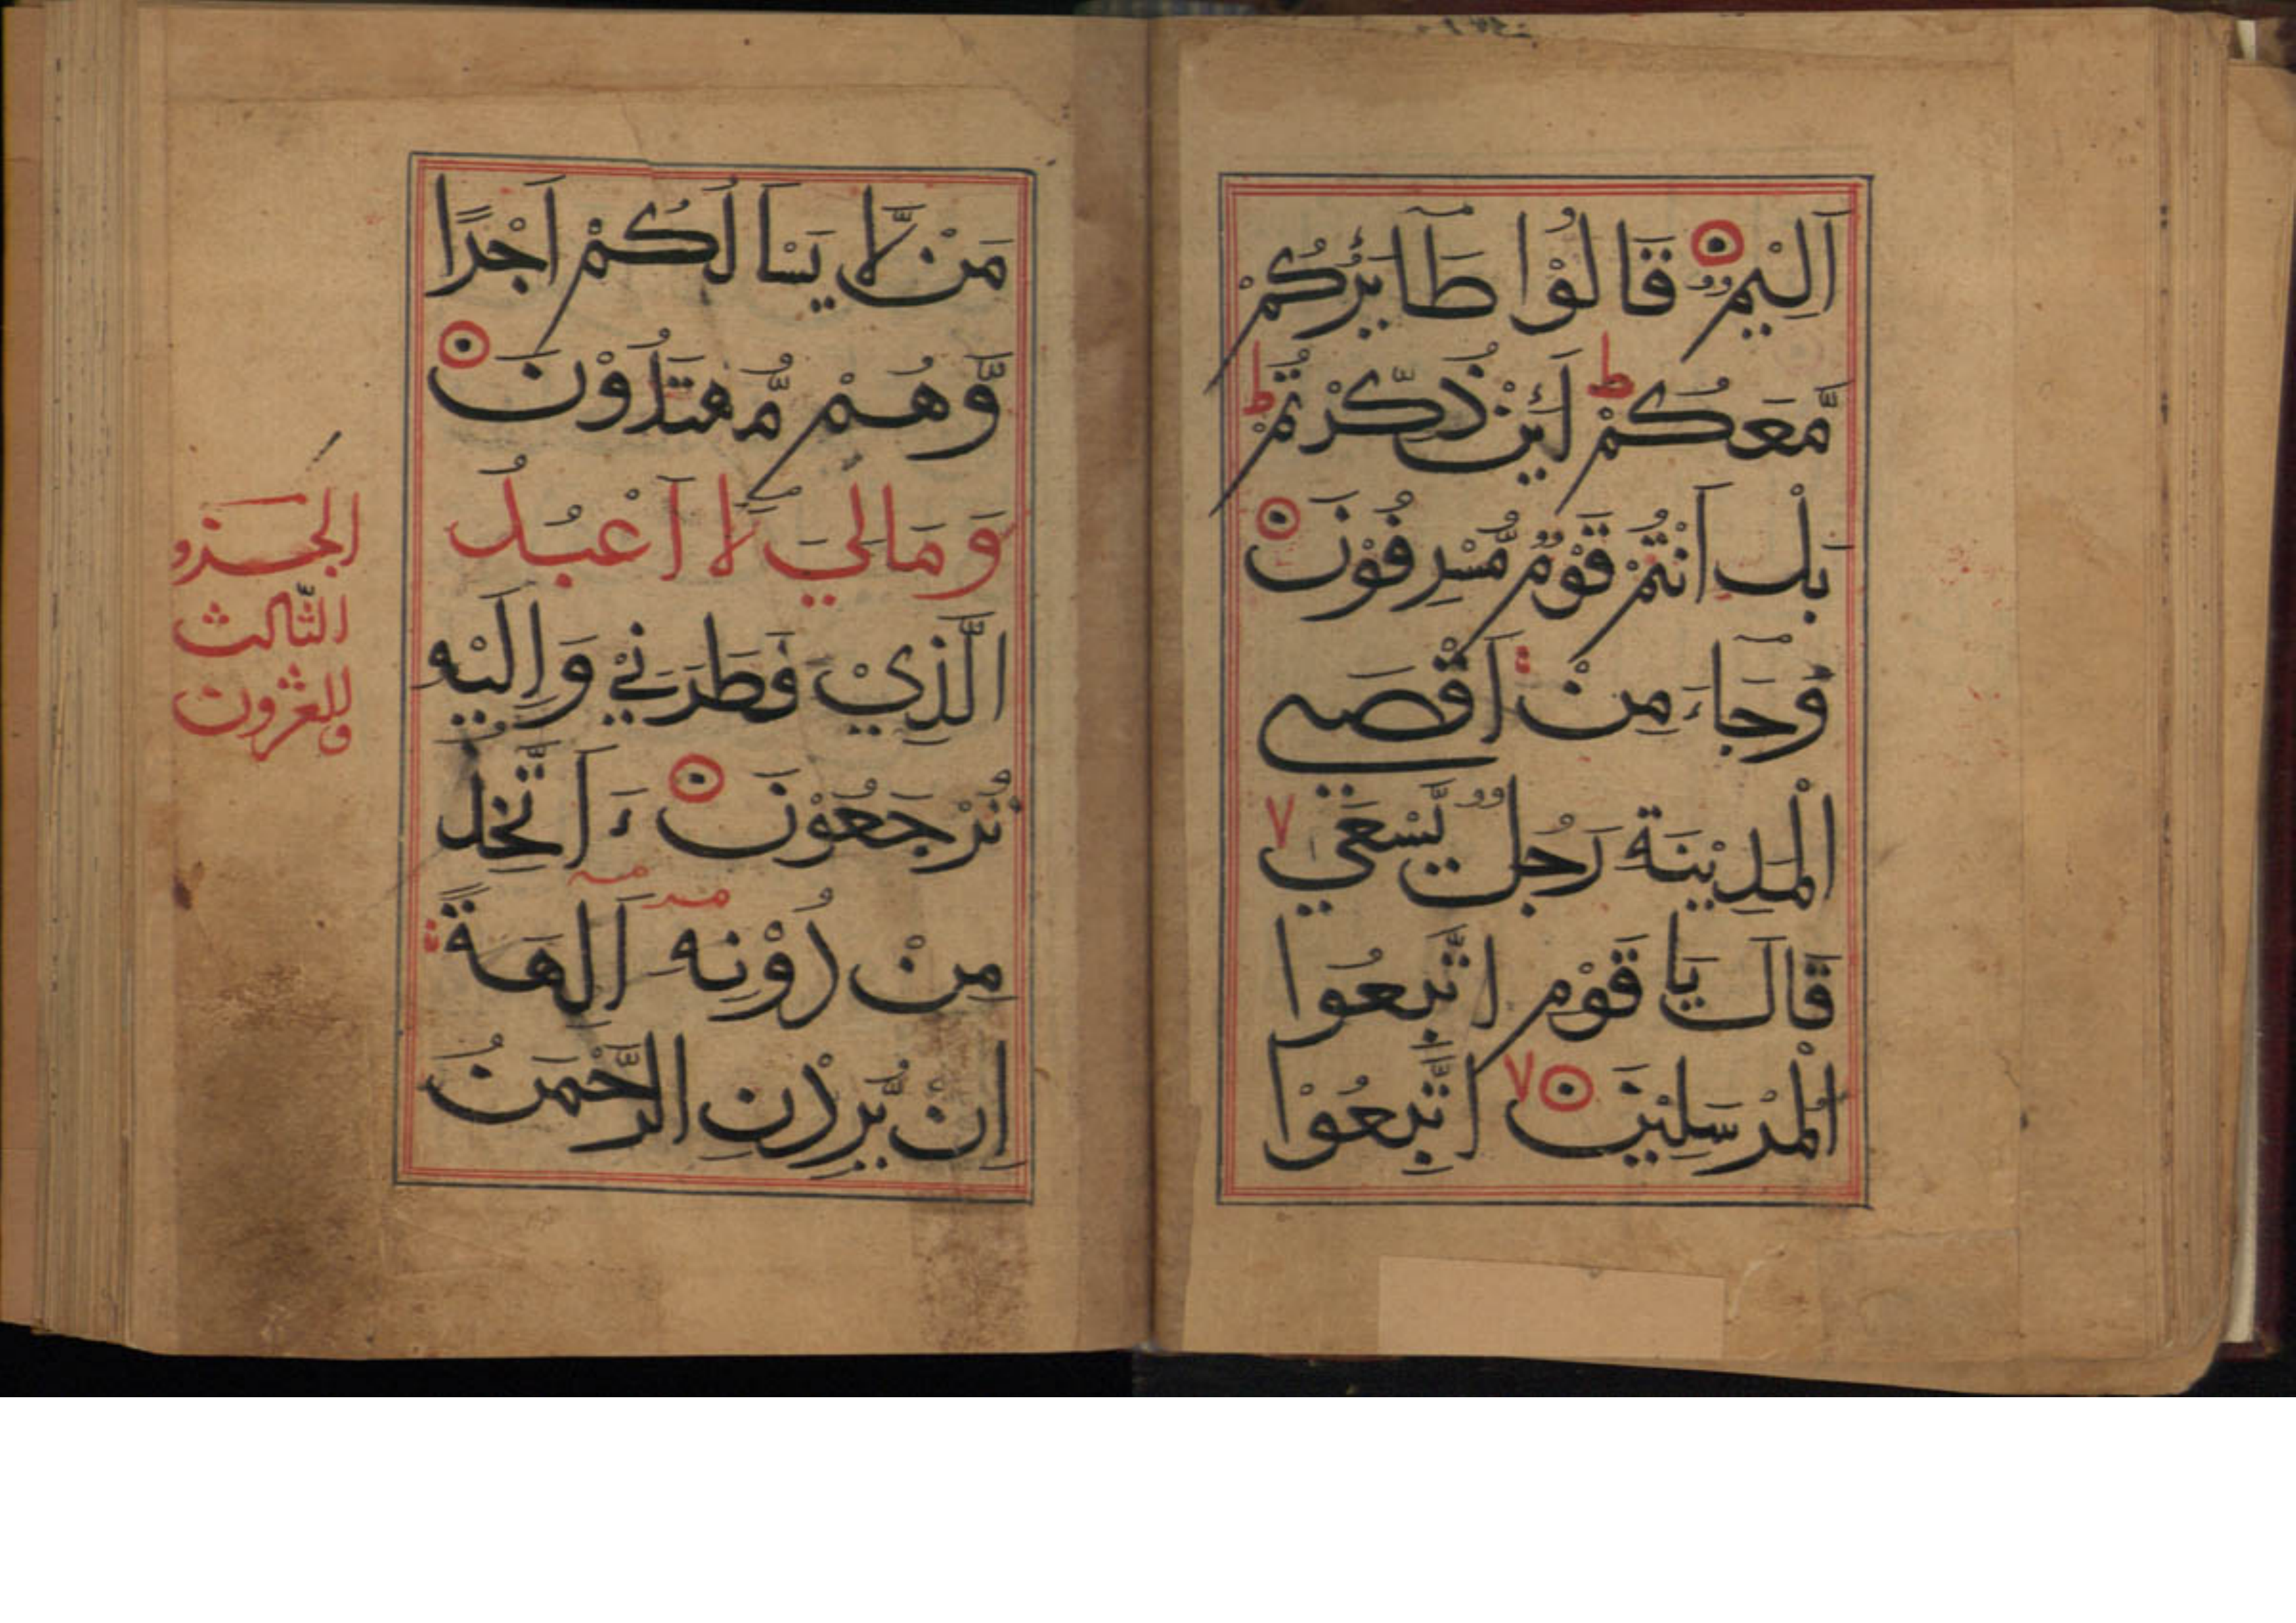 اَلِيْمٌ قَالُوْا طَائِرُكُمْ
مَّعَكُمْ لَئِنْ ذُكِّرْتُمْ
بَلْ اَنْتُمْ قَوْمٌ مُّسْرِفُوْنَ
وَجَاءَ مِنْ اَقْصَي
الْمَدِيْنَةِ رَجُلٌ يَّسْعَي
قَالَ يَا قَوْمِ اتَّبِعُوا
الْمُرْسَلِيْنَ اتَّبِعُوْا
مَنْ لَّا يَسْاَلُكُمْ اَجْرًا
وَّهُمْ مُّهْتَدُوْنَ
وَمَالِيَ لَا اَعْبُدُ
الَّذِيْ فَطَرَنِيْ وَاِلَيْهِ
تُرْجَعُوْنَ ءَاَتَّخِذُ
مِنْ دُوْنِهِ اٰلِهَةً
اِنْ يُّرِدْنِ الرَّحْمٰنُ
الجزو
الثّالث
والعشرون